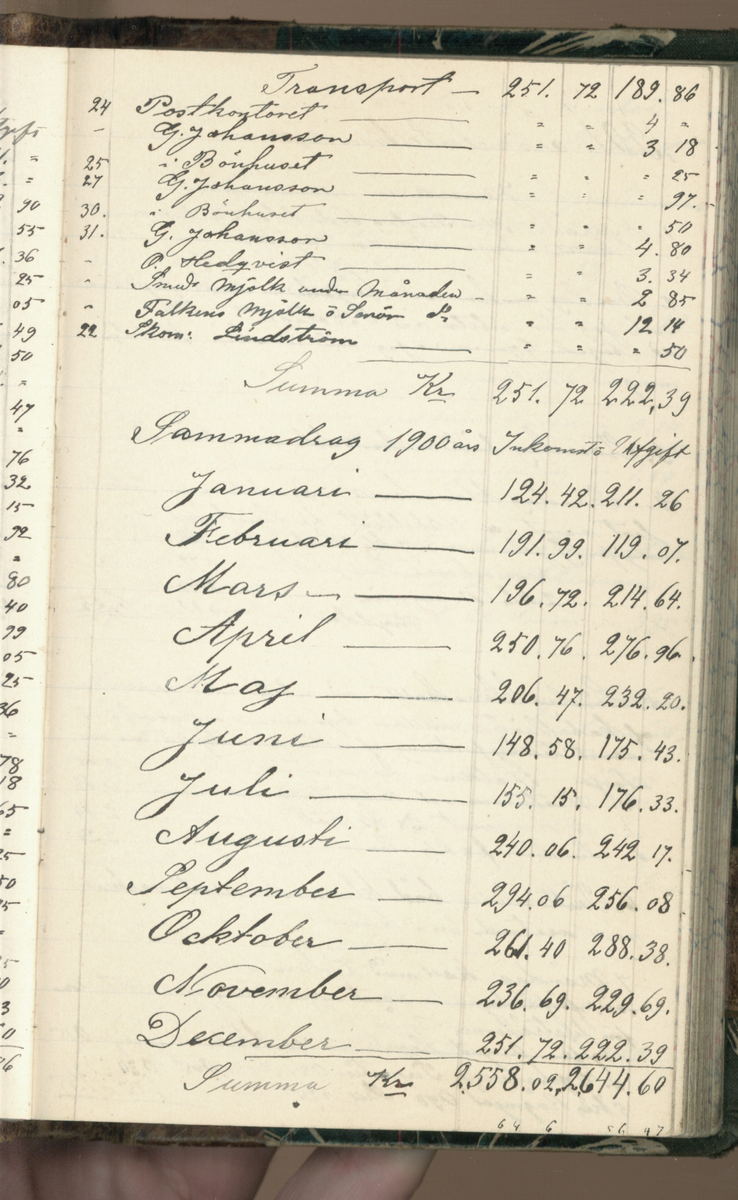 Transport — 251. 72 189. 86
24 Postkontoret — " " 4 "
- G. Johansson — " " 3 18
25 i Bönhuset — " " " 25
27 G. Johansson — " " " 97.
30. i Bönhuset — " " " 50
31. G. Johansson — " " 4. 80
- Hedqvist — " " 3. 34
- Mjölk under Månaden - " " 2 85
- Falkens Mjölk o Smör " " 12 14
22 Skom: Lindström — " " " 50
Summa Kr 251. 72 222,39
Sammadrag 1900 års Inkomst o Utgift
Januari — 124. 42. 211. 26
Februari — 191. 99. 119. 07.
Mars — 196. 72. 214. 64.
April — 250. 76. 276. 96.
Maj — 206. 47. 232. 20.
Juni — 148. 58. 175. 43.
Juli — 155. 15. 176. 33.
Augusti — 240. 06. 242 17.
September — 294. 06 256. 08
Ocktober — 261. 40 288. 38.
November — 236. 69. 229. 69.
December — 251. 72. 222. 39
Summa Kr 2,558. 02, 2,644. 60